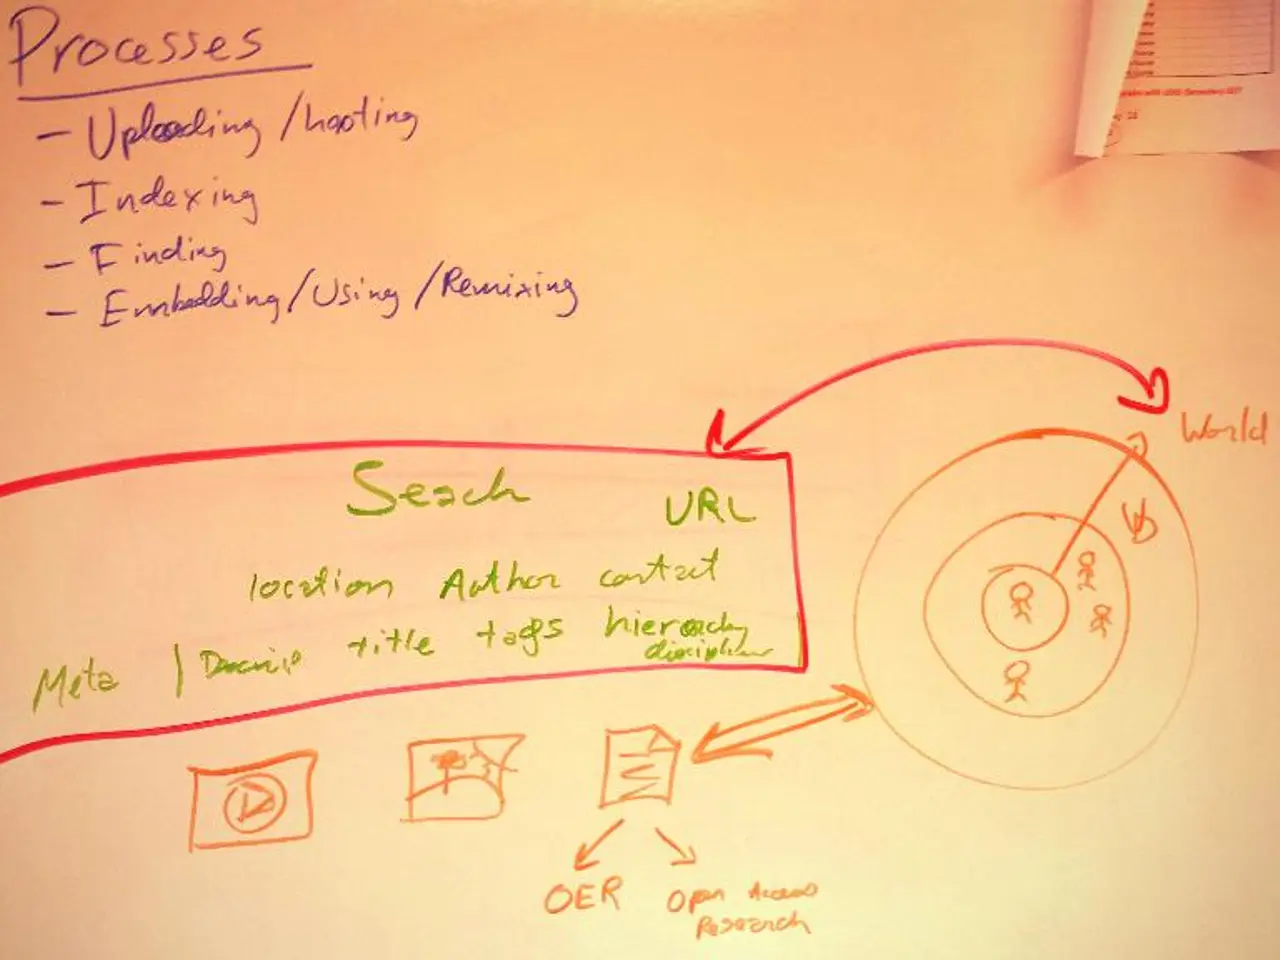 Processes
- Uploading / hosting
- Indexing
- Finding
- Embedding / Using / Remixing
World
Search
URL
location Author contact
Meta | title tags hierarchy
discipline
OER
Open Access
Research